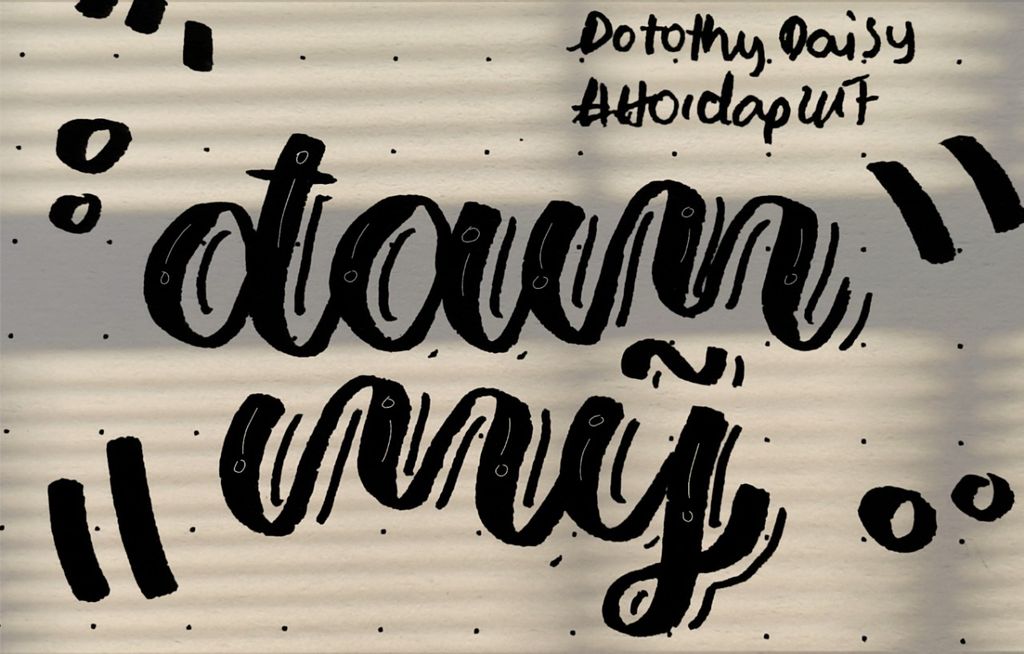 Dotothy Daisy
#Hoidap247
đam
mỹ